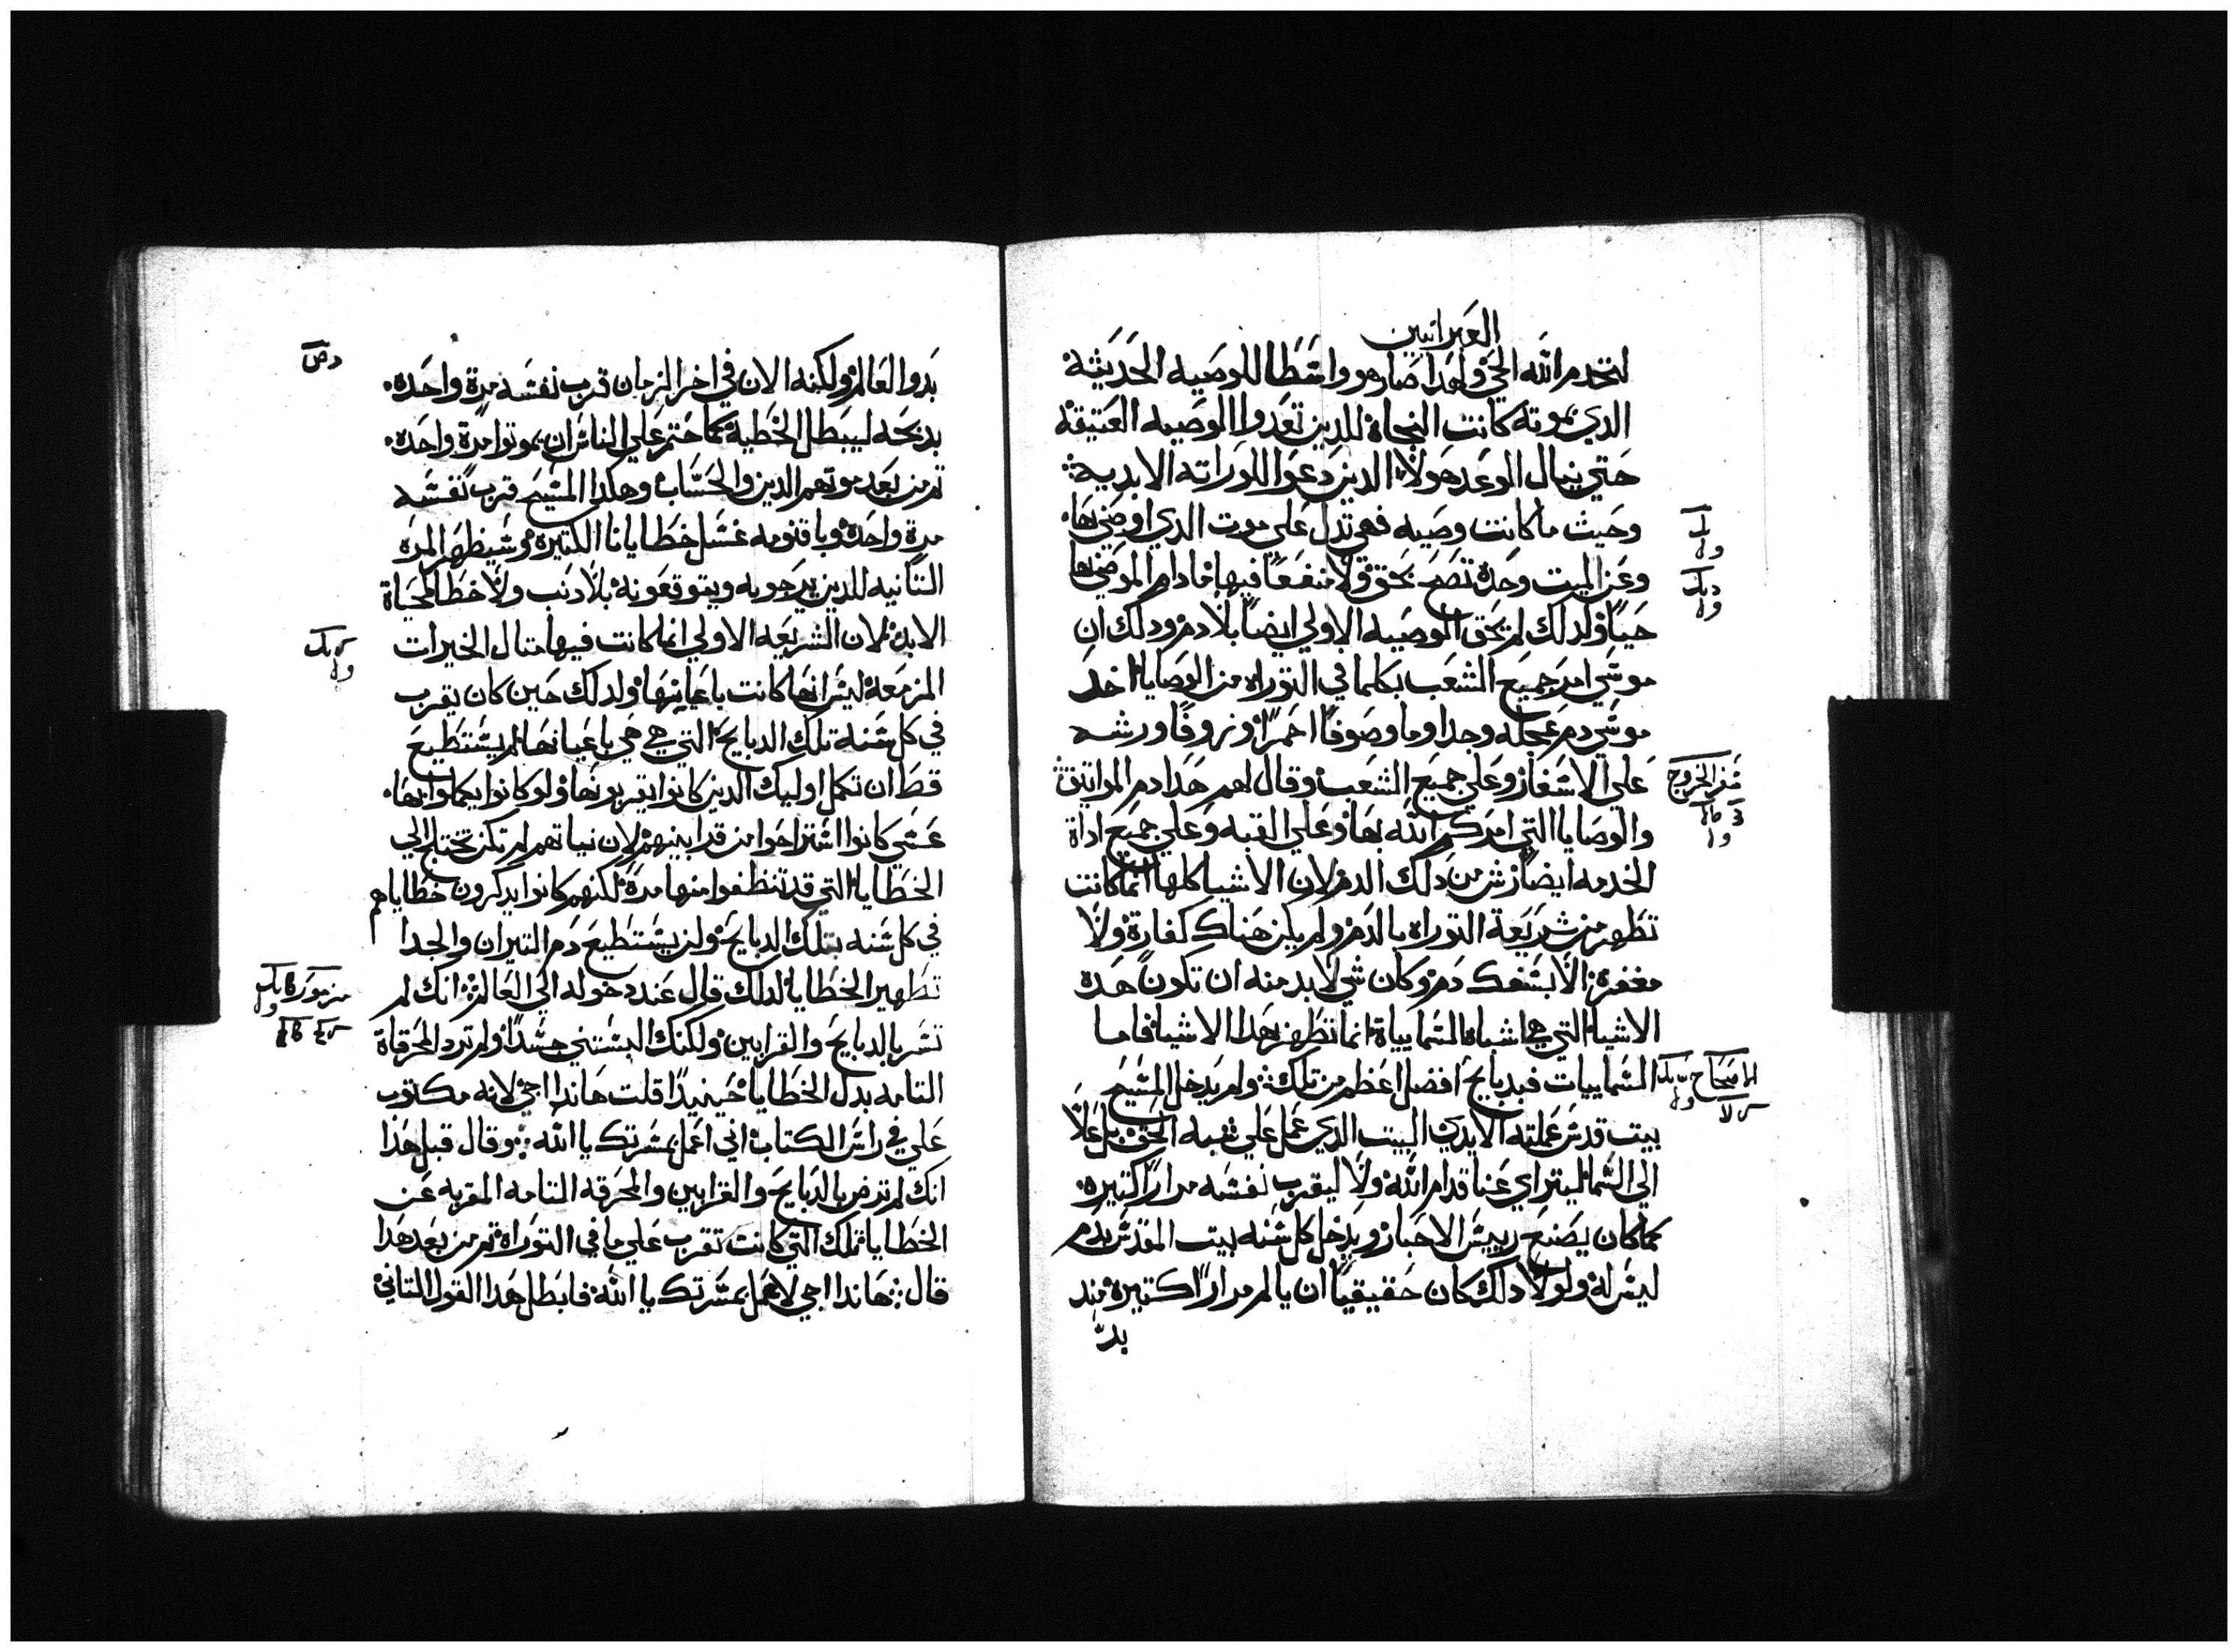 العبرانيين
لتخدم الله الحي ولهدا صار هو واسطا للوصيه الحديثة
الدي بموته كانت النجاة للدين تعدوا الوصيه العتيقة
حتي ينال الوعد هولاء الدين دعوا للوراته الابدية
وحيث ما كانت وصيه فهي تدل علي موت الدي اوصي بها
وعن الميت وحده تصح بحق ولا منفعا فيها ما دام الموصي بها
حيا ولدلك لم تحق الوصيه الاولي ايضا بلا دم ودلك ان
موسي امر جميع الشعب بكلما في التوراه من الوصايا اخد
موسي دم عجله وجدا وما وصوفا احمرا وزوفا ورشه
علي الاسفار وعلي جميع الشعب وقال لهم هدا دم المواتيق
والوصايا التي امركم الله بها وعلي القبه وعلي جميع اداة
الخدمه ايضا رش من دلك الدم لان الاشيا كلها انما كانت
تطهر من شريعة التوراه بالدم ولم يكن هناك كفارة ولا
مغفرة الا بسفك دم وكان شي لا بد منه ان تكون هده
الاشيا التي هي اشباه السماييات انما تطهر بهدا الاشيا فاما
السماييات فبدبايح افضل اعظم من تلك ولم يدخل المسيح
بيت قدس عملته الايدي البيت الدي عمل علي شبه الحق بل علا
الي السما ليتراي عنا قدام الله ولا ليقرب نفسه مرارا كتيره
كما كان يصنع رييس الاحبار ويدخل كل سنه بيت المقدس بدم
ليس له ولولا دلك كان حقيقيا ان يالم مرارا كتيرة مند
بد
سفر الخروج
الاصحاح
بدو العالم ولكنه الان في اخر الزمان قرب نفسه مرة واحده
بدبحه ليبطل الخطية كما حتم علي الناس ان يموتوا مرة واحده
تم من بعد موتهم الدين والحساب وهكدا المسيح قرب نفسه
مرة واحدة وباقنومه غسل خطايانا الكتيرة وسيظهر المره
التانيه للدين يرجويه ويتوقعونة بلا دنب ولا خطا لحياة
الابد لان الشريعه الاولي انما كانت فيها متال الخيرات
المزمعة ليس انها كانت باعيانها ولدلك حين كان يقرب
في كل سنه تلك الدبايح التي هي هي باعيانها لم يستطيع
قط ان تكمل اوليك الدين كانوا يقربونها ولو كانوا يكملوا بها
عسي كانوا استراحوا من قرابينهم لان نياتهم لم تكن تحتاج الي
الخطايا التي قد تنظفوا منها مرة لكنهم كانوا يدكرون خطاياهم
في كل سنه بتلك الدبايح ولن يستطيع دم التيران والجدا
تطهير الخطايا لدلك قال عند دخوله الي العالم انك لم
تسر بالدبايح والقرابين ولكنك البستني جسدا ولم ترد المحرقاة
التامه بدل الخطايا حينيدا قلت هاندا اجي لانه مكتوب
علي في راس الكتاب اني اعمل بمسرتك يا الله وقال قبل هدا
انك لم ترض بالدبايح والقرابين والمحرقه التامه المقربه عن
الخطايا تلك التي كانت تقرب علي ما في التوراة تم من بعد هدا
قال هاندا اجي لاعمل بمسرتك يا الله فابطل هدا القول التاني
مزمور